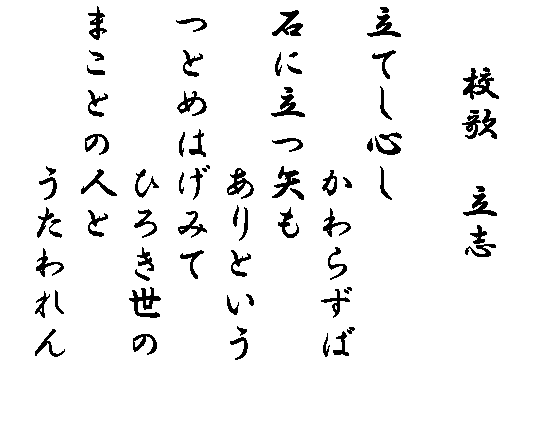 校歌　立志
立てし心し
かわらずば
石に立つ矢も
ありという
つとめはげみて
ひろき世の
まことの人と
うたわれん